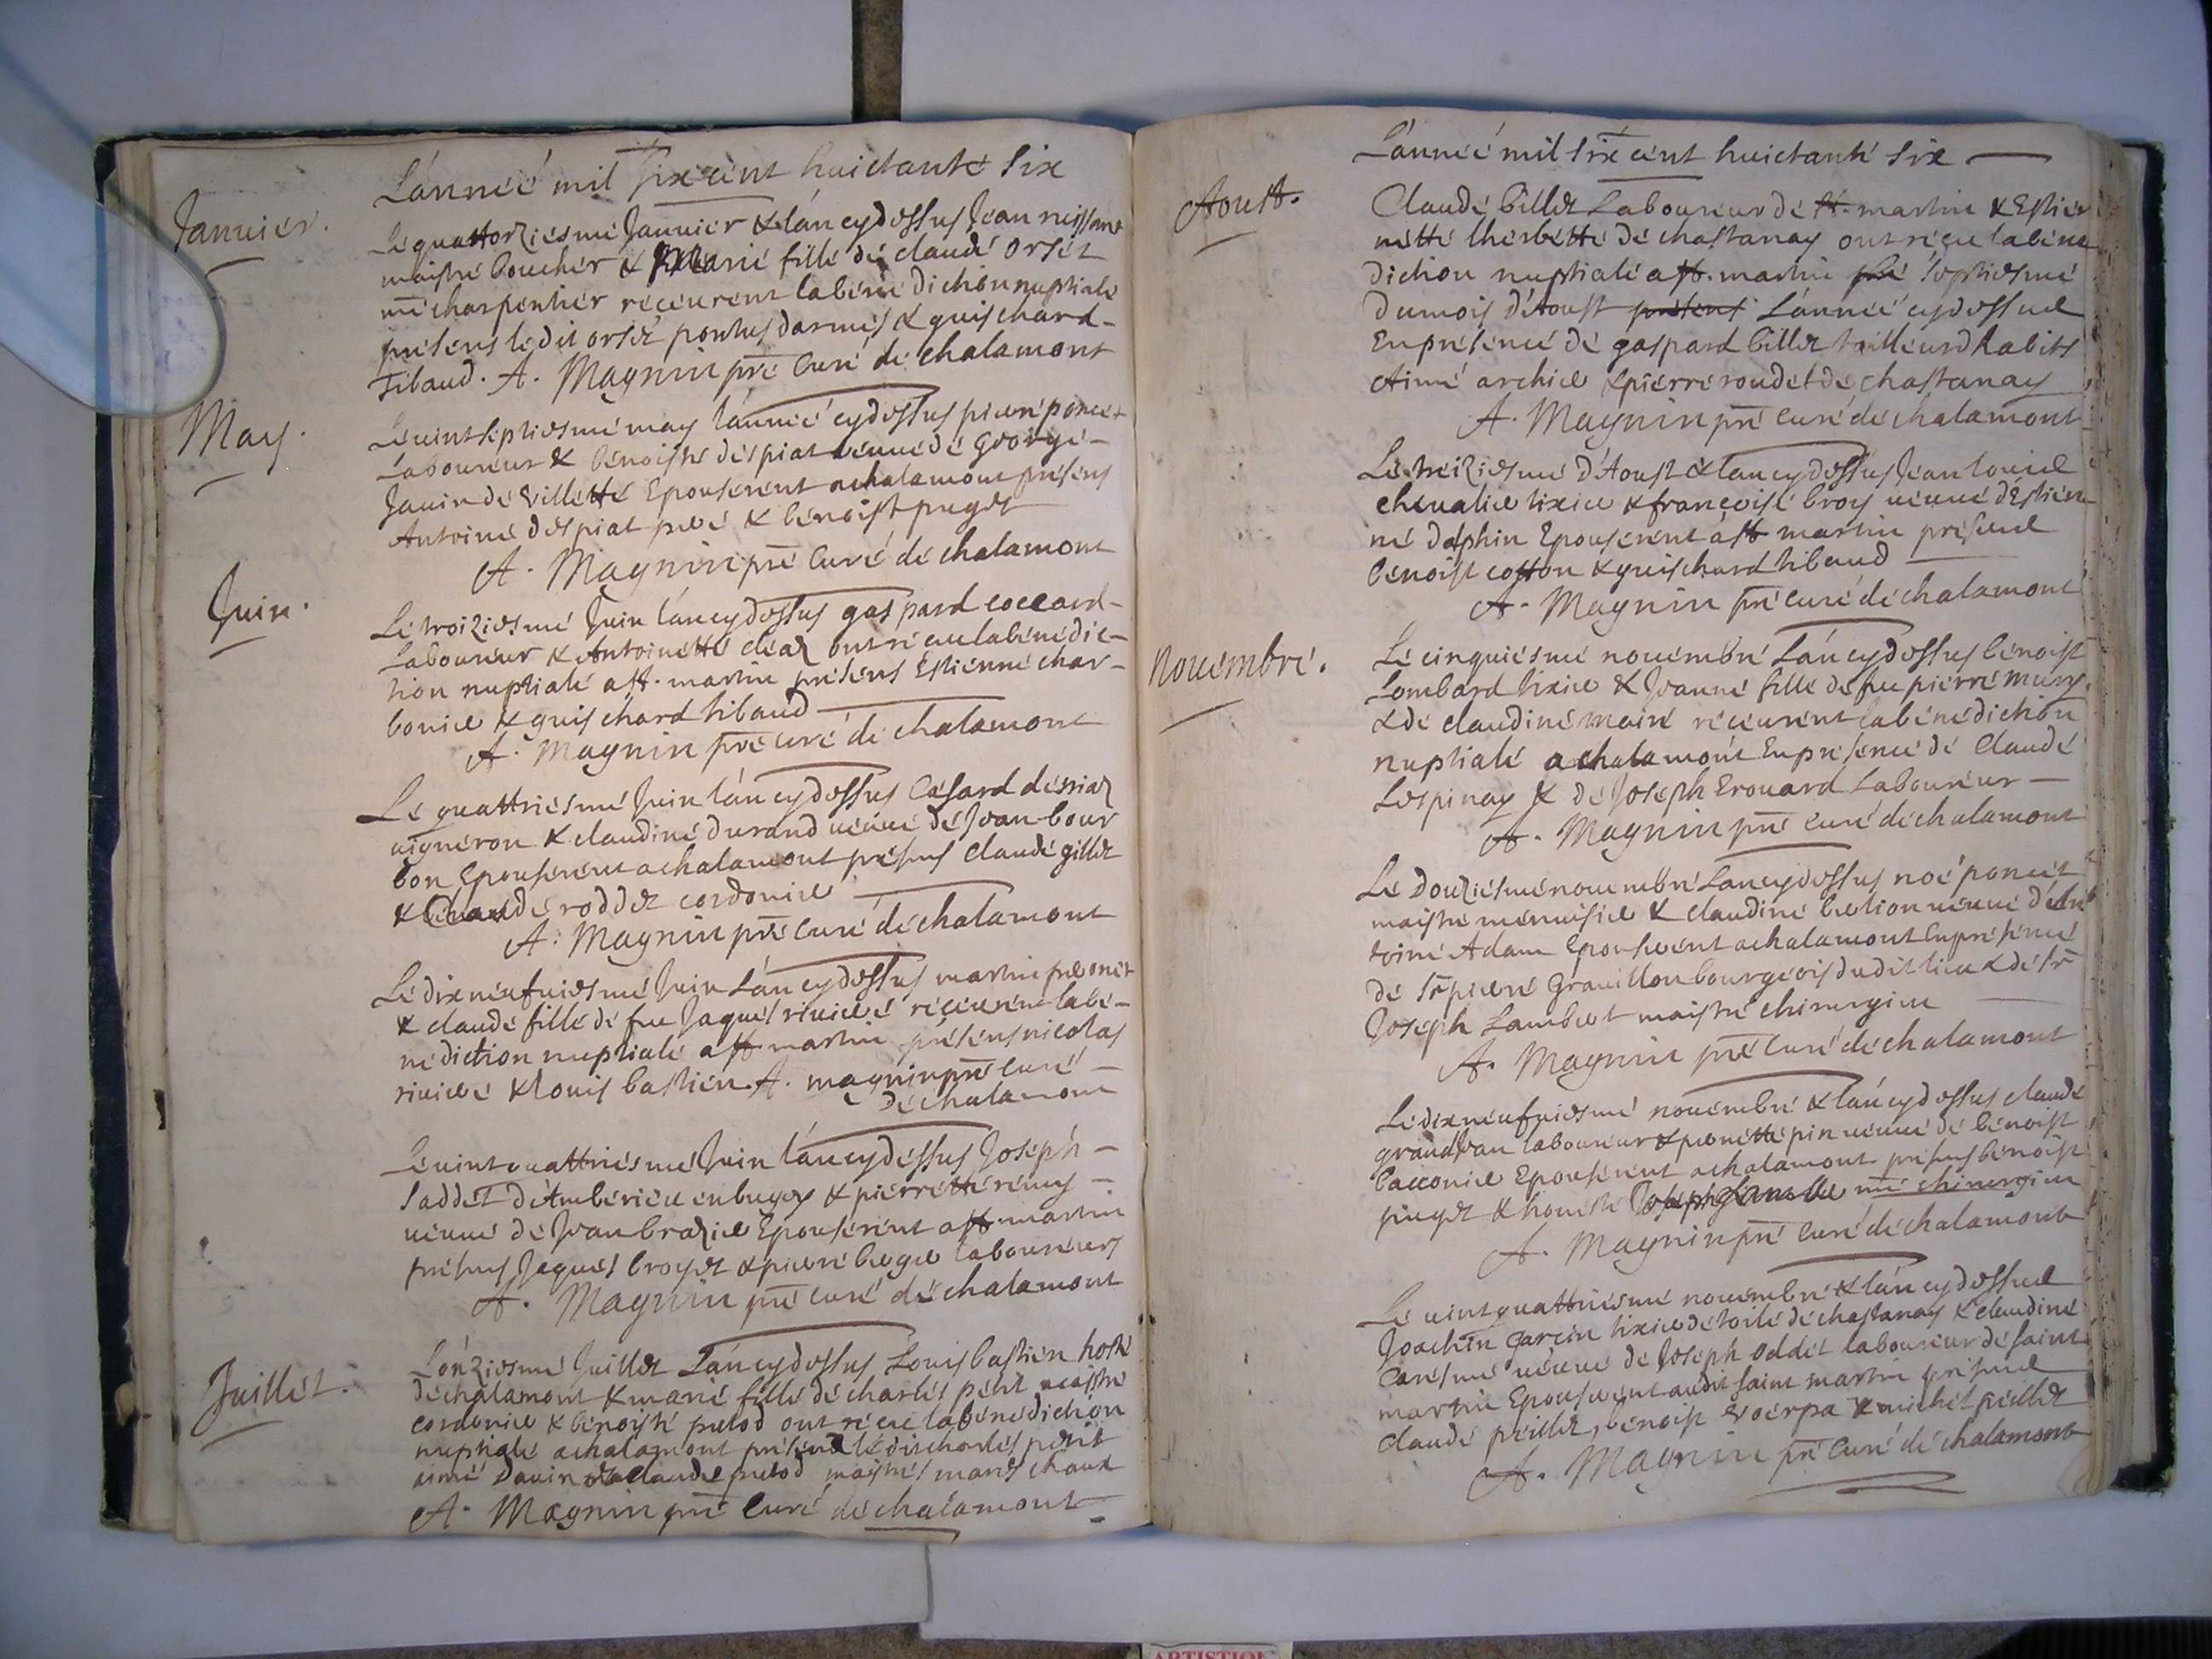 L'année mil six cent huictante six
Januier.
Le quattorziesme Januier & l'an cydessus Jean
maistre boucher & Marie fille de claude orset
me charpentier receurent la benediction nuptiale
présens le dit orset pontus darmes & guischard
Tibaud. A. Magnin pre Curé de chalamont
May.
Le vint septiesme may l'année cydessus pierre poncet
Laboureur & benoiste despiat veuue de George
Jauin de villette Epouserent a chalamont présens
Antoine despiat pere & benoist puget
A. Magnin pre Curé de chalamont
Juin.
Le troiziesme Juin l'an cydessus gaspard coccard
Laboureur & Antoinette cleaz ont reçeu la bénédic-
tion nuptiale a st. martin présens Estienne char-
bonier & guischard tibaud
A. Magnin pre curé de chalamont
Le quattriesme Juin l'an cydessus Cesard
vigneron & claudine durand veuue de Jean bour
bon Epouserent a chalamont présens claude gillet
& Claude roddet cordonier
A. Magnin pre Curé de chalamont
Le dixneufuiesme Juin L'an cydessus martin
& claude fille de feu Jaques riuiere receurent la bé-
nédiction nuptiale a st martin présens nicolas
riuiere & louis bastien. A. magnin pre Curé
de chalamont
Le vint quattriesme Juin l'an cydessus Joseph
saddet d'Amberieu en bugey & pierrette remy
veuue de Jean brazier Epouserent a st martin
présens Jaques broyet & pierre laboureurs
A. Magnin pre curé de chalamont
Juillet.
L'onziesme Juillet L'an cydessus Louis bastien hoste
de chalamont & marie fille de charles petit maistre
cordonier & benoiste putod ont reçeu la bénédiction
nuptiale a chalamont présens le dit charles petit
aimé Dauin & claude putod maistres mareschaux
A. Magnin pre Curé de chalamont
L'année mil six cent huictante six
Aoust.
Claude billet Laboureur de st. martin & Estien
nette lherbette de chastanay ont reçeu la béné
diction nuptiale a st. martin le septiesme
du mois d'Aoust présent L'année cydessus
En présence de gaspard billet tailleur d'habits
Aimé archier & pierre roudet de chastanay
A. Magnin pre Curé de chalamont
Le treiziesme d'Aoust & l'an cydessus Jean louis
cheualier tixier & françoise broy veuue d'Estien-
ne dalphin Epouserent a st martin présens
benoist cotton & guischard tibaud
A. Magnin pre curé de chalamont
Nouembre.
Le cinquiesme nouembre L'an cydessus benoist
Lombard tixier & Jeanne fille de feu pierre mury
& de claudine maire receurent la bénédiction
nuptiale a chalamont En présence de Claude
Lespinay & de Joseph Erouard Laboureur
A. Magnin pre Curé de chalamont
Le Douziesme nouembre L'an cydessus noé poncet
maistre menuisier & claudine veuue d'An
toine Adam Epouserent a chalamont En présence
de sr pierre Grauillon bourgeois dudit lieu & de sr
Joseph Lambert maistre chirurgien
A. Magnin pre Curé de chalamont
Le dixneufuiesme nouembre & l'an cydessus claude
grandJean laboureur & pernette pin veuue de benoist
bacconier Epouserent a chalamont présens benoist
puget & honeste Joseph me chirurgien
A. Magnin pre Curé de chalamont
Le vint quattriesme nouembre & l'an cydessus
Joachin Garcin tixier de toile de chastanay & claudine
Caresme veuue de Joseph oddet laboureur de saint
martin Epouserent audit saint martin présens
claude peillet, benoist & michel peillet
A. Magnin pre Curé de chalamont